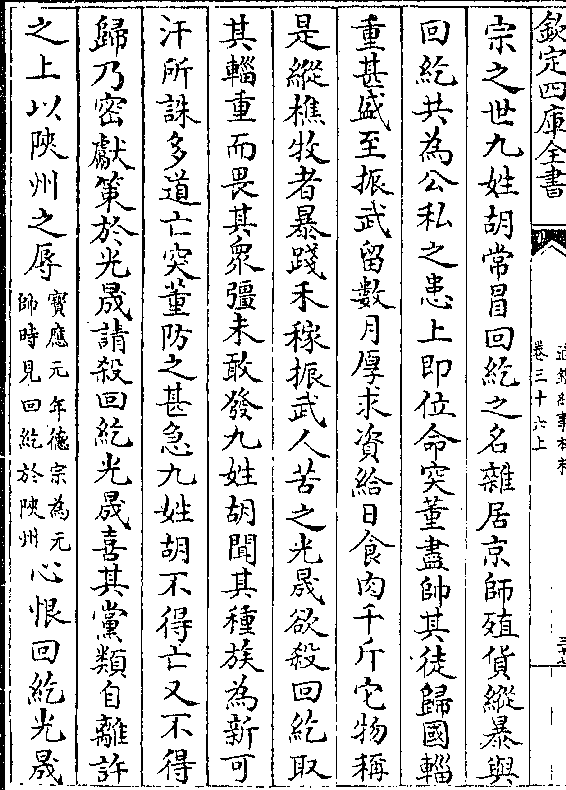 欽定四庫全書
卷三十六上
宗之世九姓胡常冒回紇之名雜居京師殖貨縱暴與
回紇共為公私之患上即位命突董盡帥其徒歸國輜
重甚盛至振武留數月厚求資給日食肉千斤它物稱
是縱樵牧者暴踐禾稼振武人苦之光晟欲殺回紇取
其輜重而畏其衆彊未敢發九姓胡聞其種族為新可
汗所誅多道亡突董防之甚急九姓胡不得亡又不得
歸乃密獻策於光晟請殺回紇光晟喜其黨類自離許
之上以陜州之辱寳應元年德宗為元
師時見回紇於陜州心恨回紇光晟